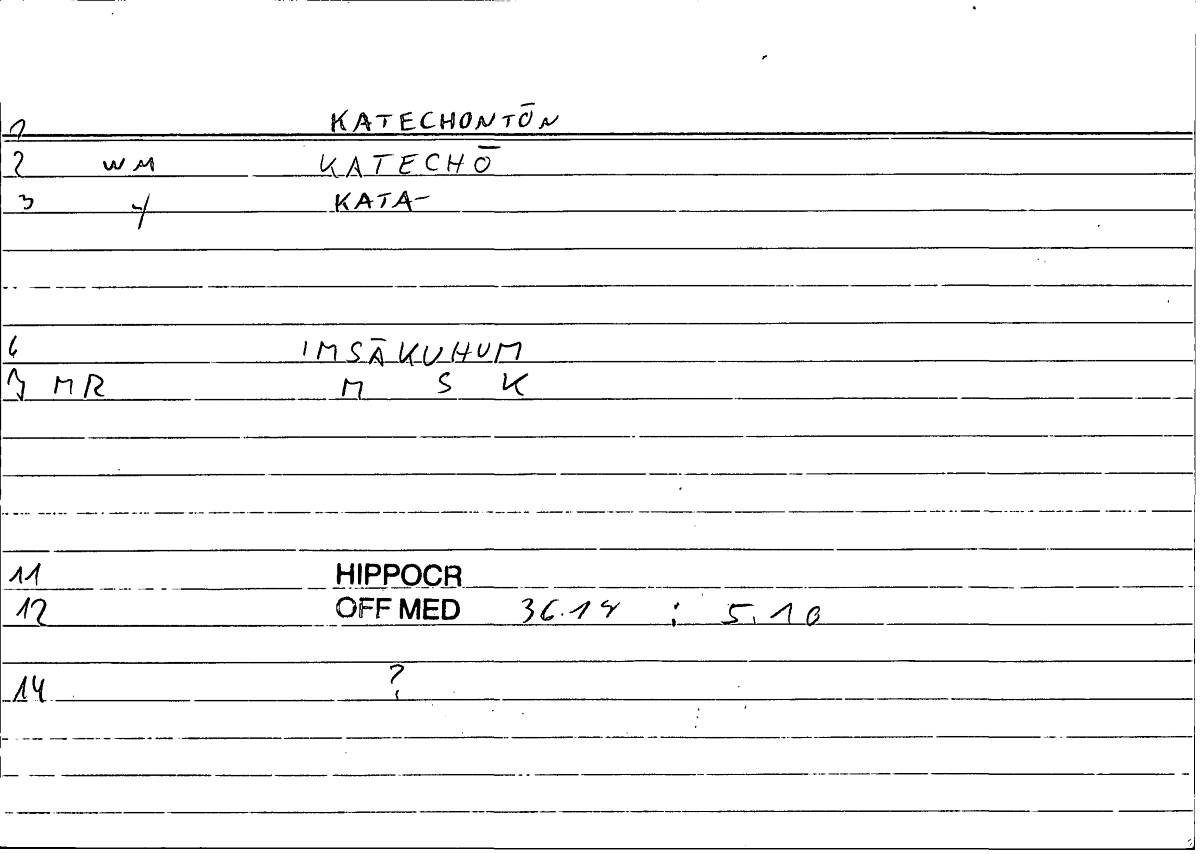 1 KATECHONTŌN
2 WM KATECHŌ
3 KATA-
6 IMSĀKUHUM
7 MR M S K
11 HIPPOCR
12 OFF MED 36.14 : 5.10
14 ?